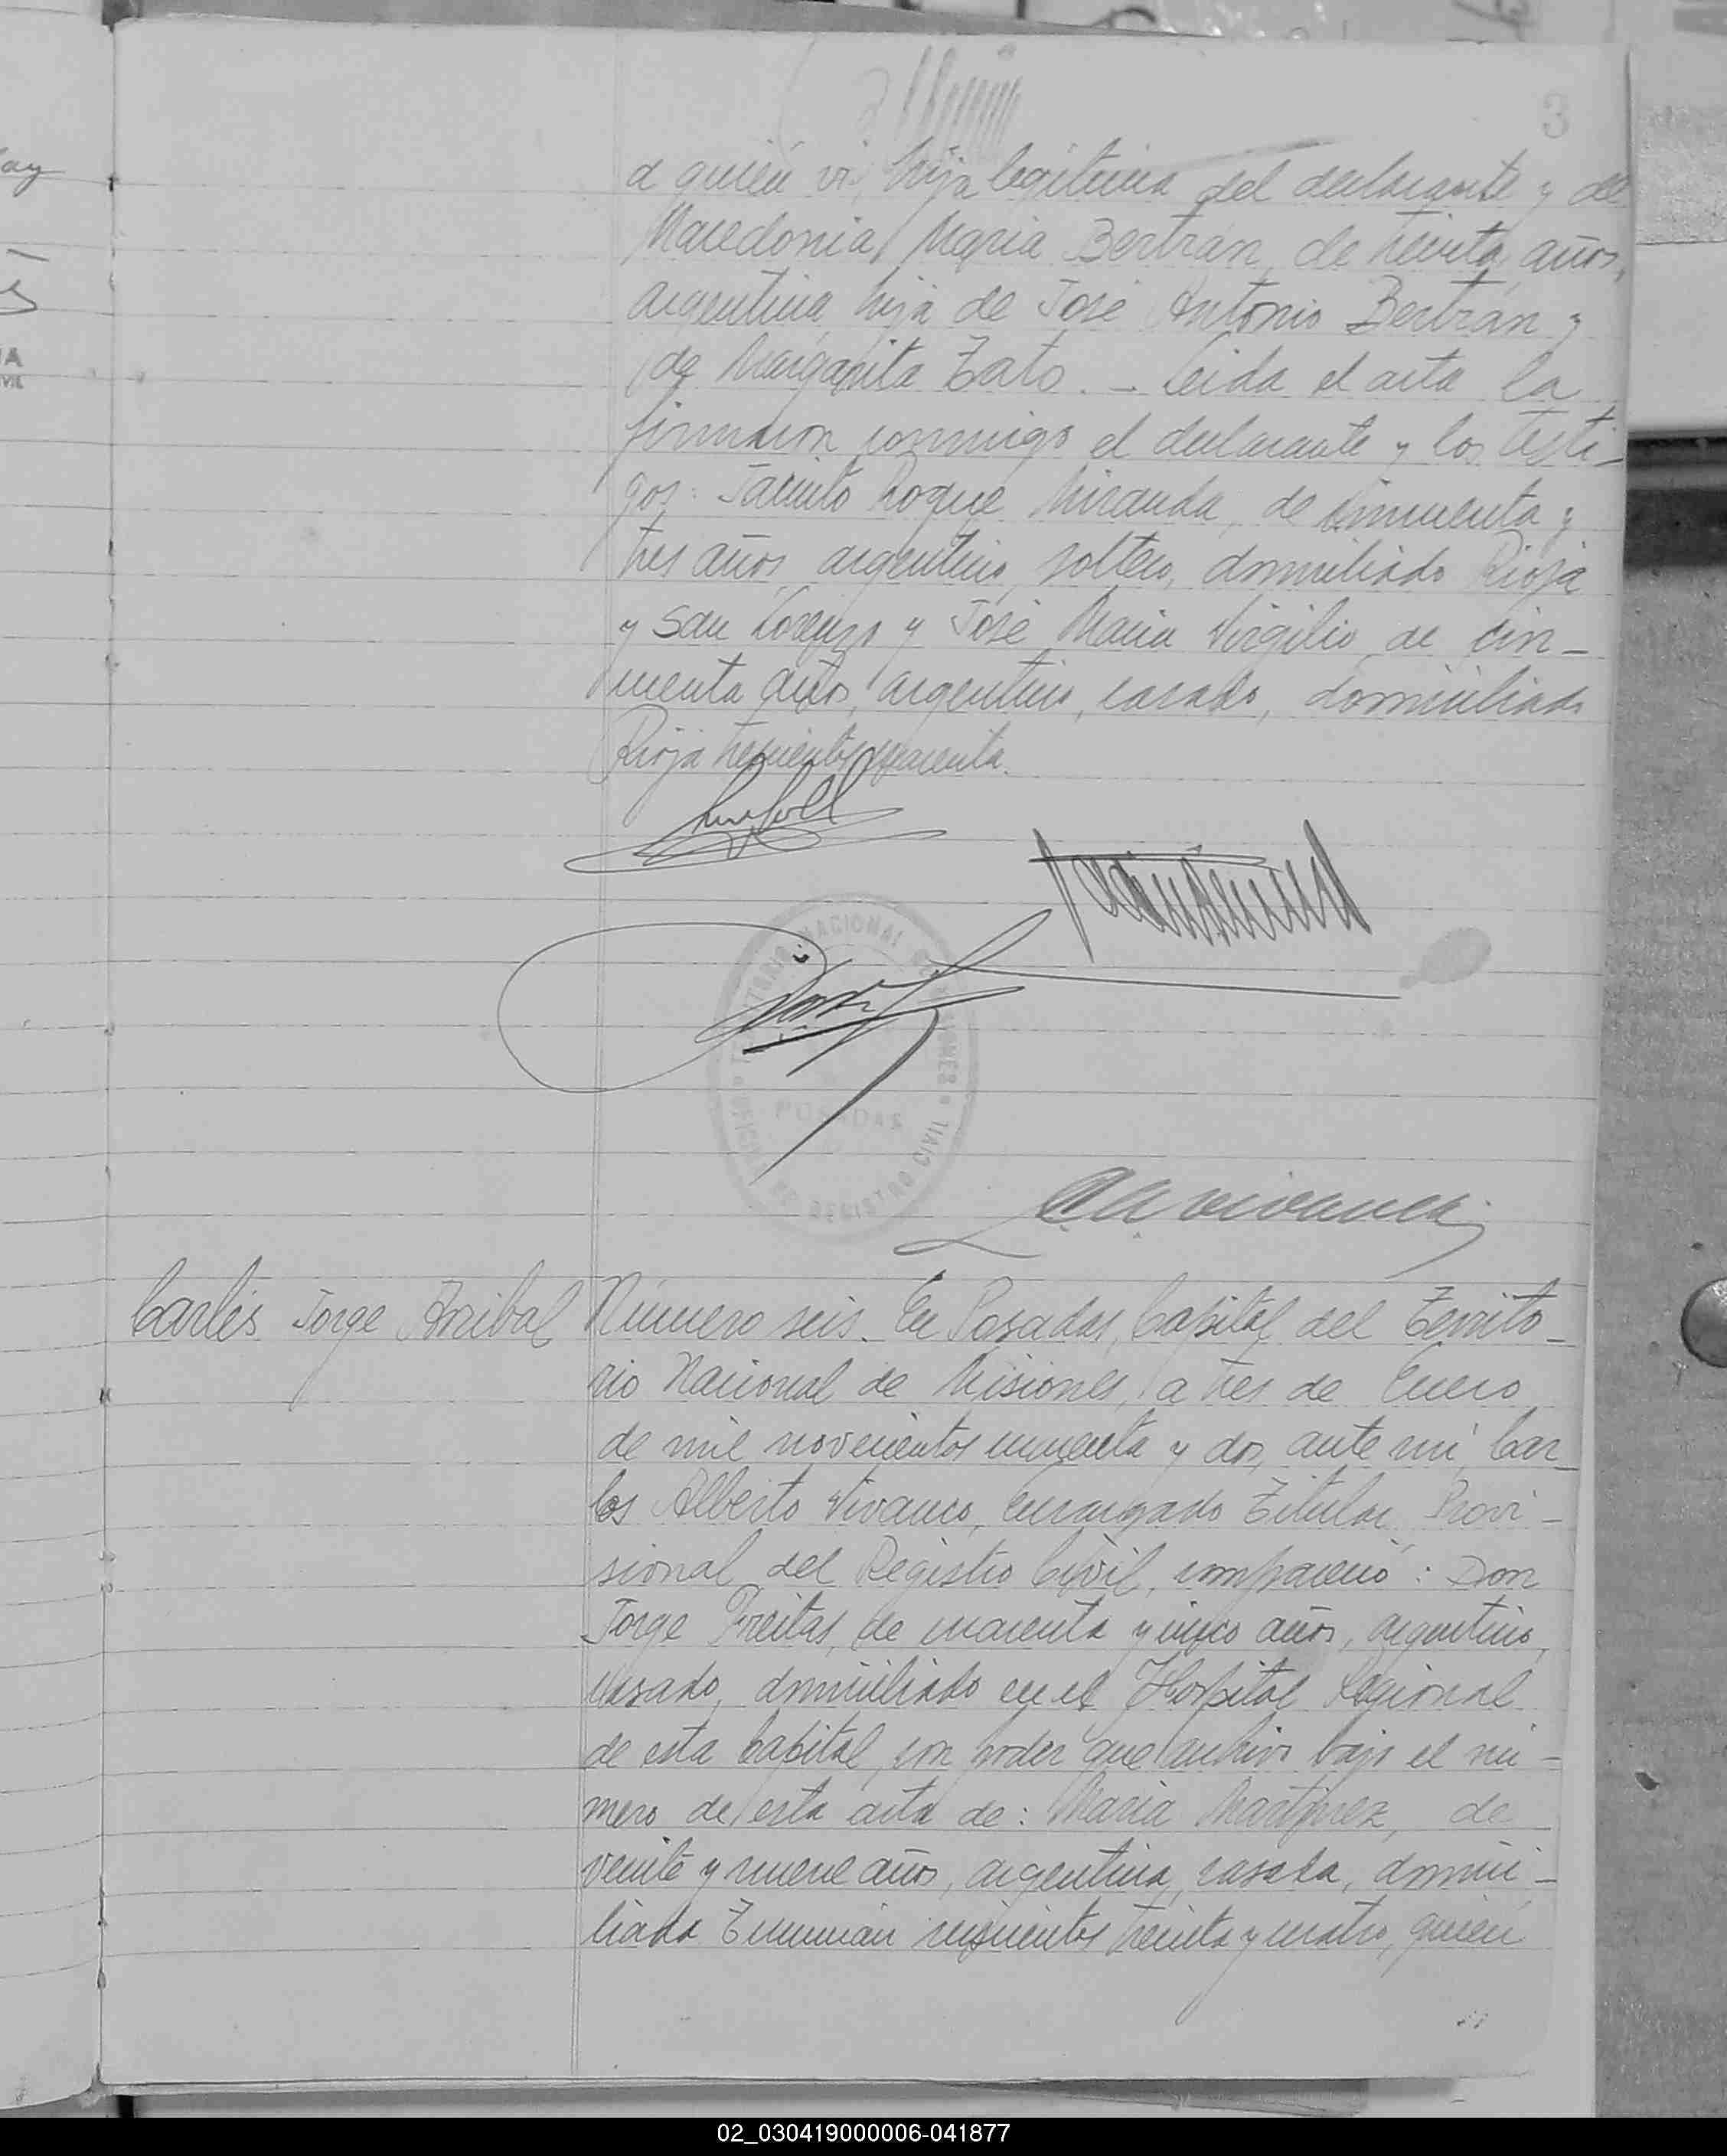 3
a quien vi, hija legitima del declarante y de
Macedonia Maria Bertrán, de treinta años,
argentina, hija de José Antonio Bertrán y
de Margarita Zato. - Leida el acta la
firmaron conmigo el declarante y los testi-
gos: Jacinto Roque Miranda, de cincuenta y
tres años, argentino, soltero, domiciliado Rioja
y San Lorenzo y José Maria Virgilio de cin-
cuenta años, argentino, casado, domiciliado
Rioja
TERRITORIO NACIONAL DE MISIONES
POSADAS
OFICINA DE REGISTRO CIVIL
Carlés Jorge Anibal
Número seis. En Posadas, Capital del Territo-
rio Nacional de Misiones, a tres de Enero
de mil novecientos cincuenta y dos, ante mi, Car-
los Alberto Vivanco, Encargado Titular Provi-
sional del Registro Civil, compareció: Don
Jorge Freitas, de cuarenta y cinco años, argentino,
casado, domiciliado en el Hospital Regional
de esta Capital, con poder que archivo bajo el nú-
mero de esta acta de: Maria Martinez, de
veinte y nueve años, argentina, casada, domici-
liada Tucumán treinta y cuatro, quien
02_030419000006-041877